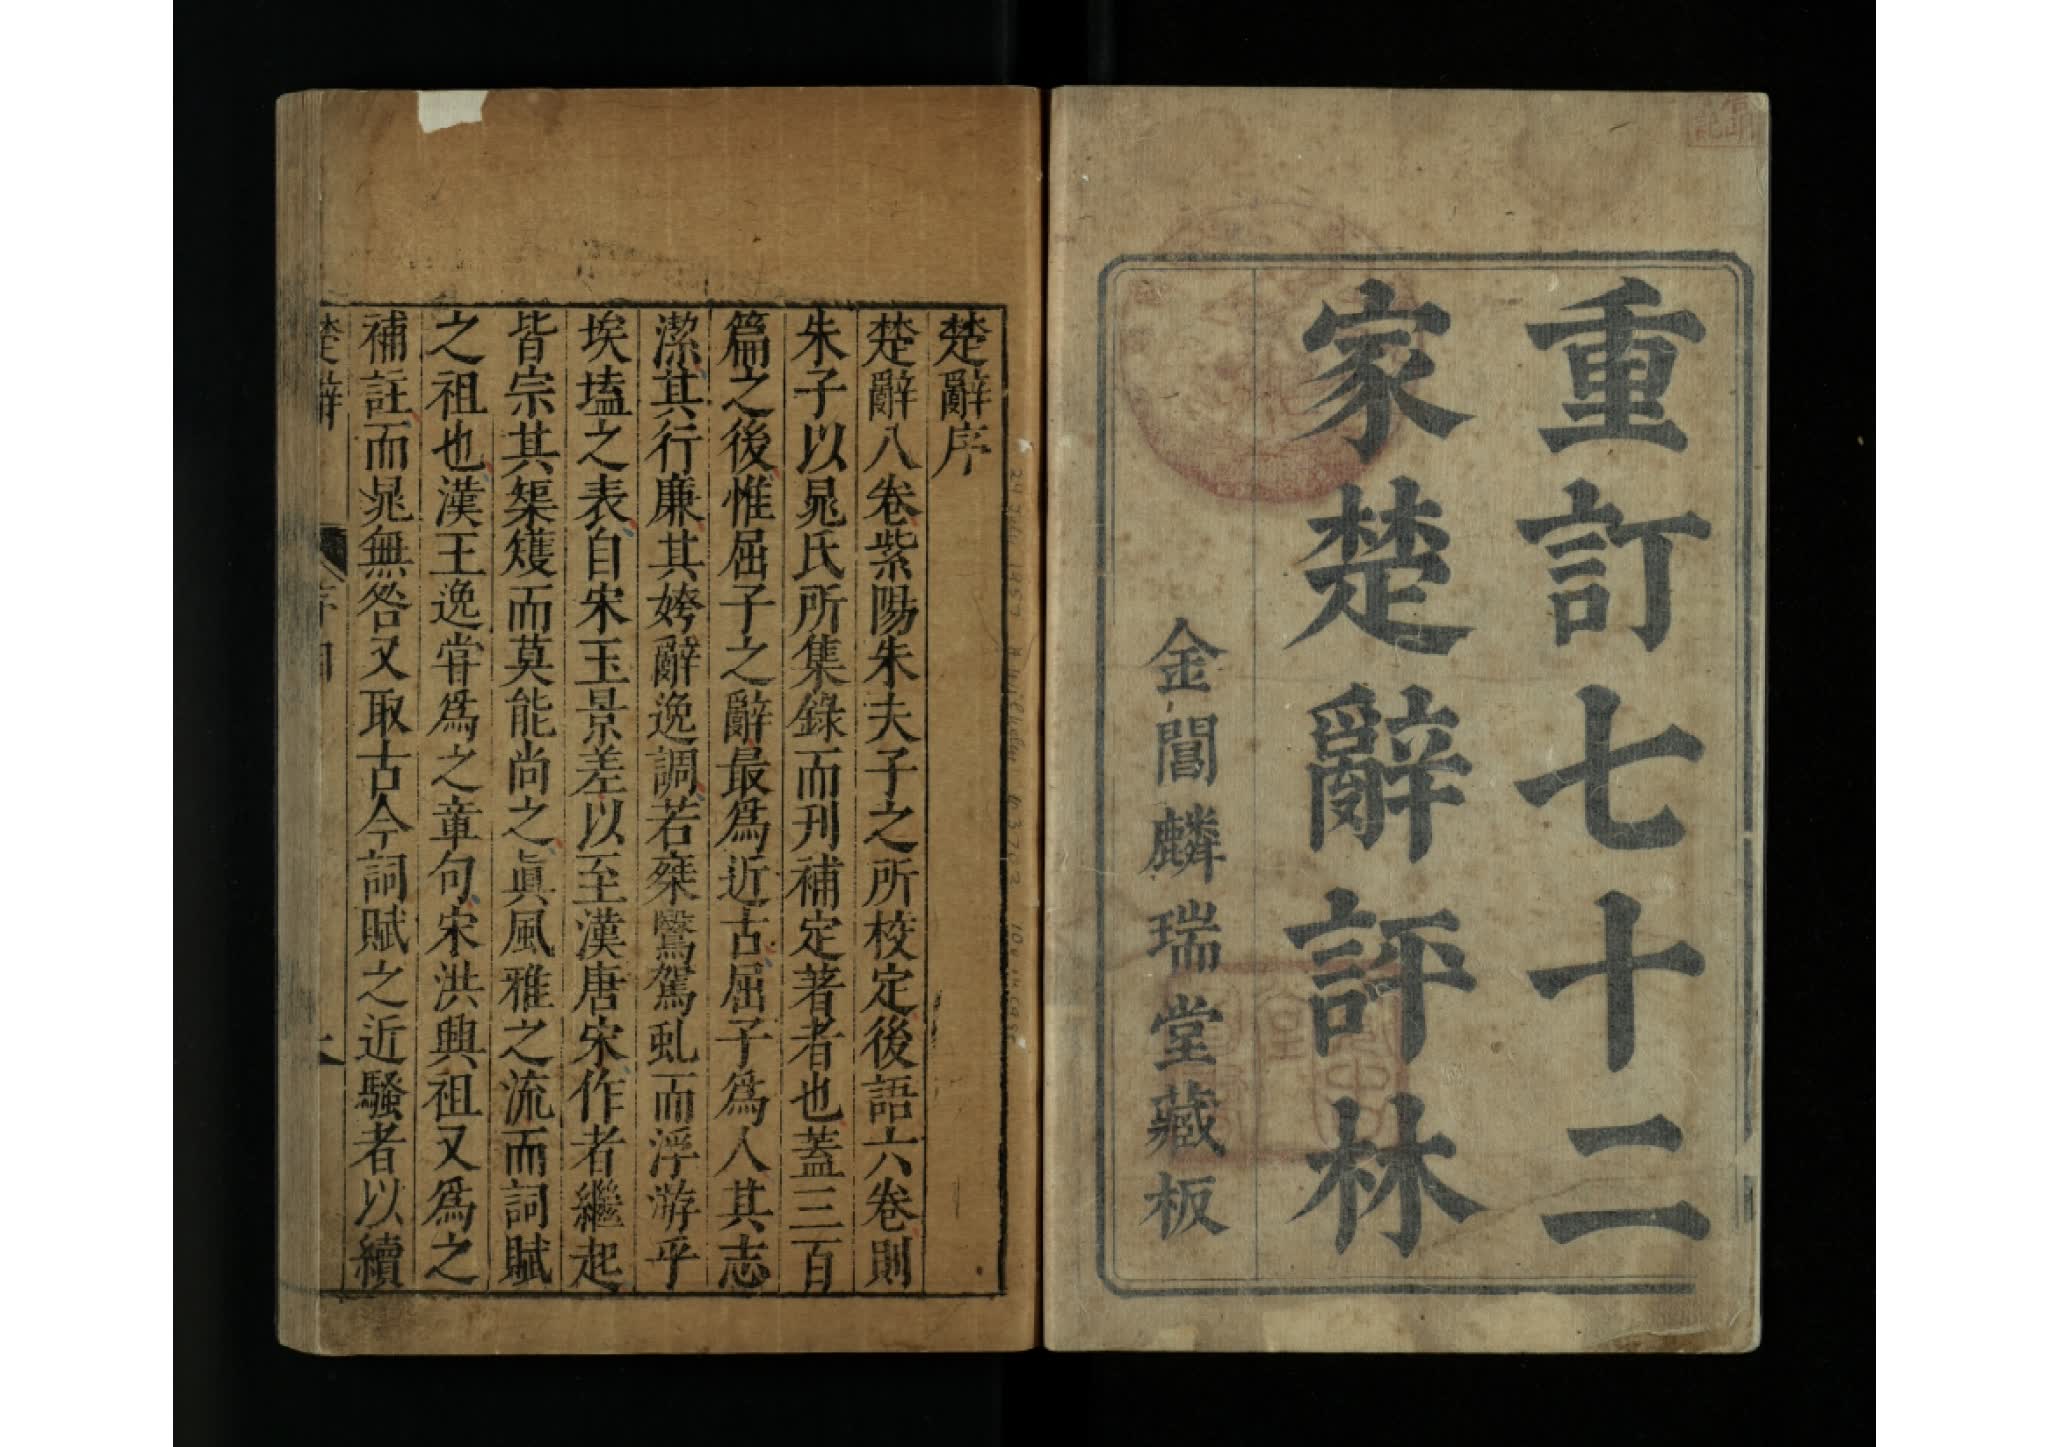 重訂七十二
家楚辭評林
金閶麟瑞堂藏板
楚辭序
楚辭八卷紫陽朱夫子之所校定後語六卷則
朱子以晁氏所集錄而刊補定著者也蓋三百
篇之後惟屈子之辭最爲近古屈子爲人其志
潔其行廉其姱辭逸調若椉鷖駕虬而浮游乎
埃壒之表自宋玉景差以至漢唐宋作者繼起
皆宗其榘矱而莫能尚之眞風雅之流而詞賦
之祖也漢王逸甞爲之章句宋洪興祖又爲之
補註而晁無咎又取古今詞賦之近騷者以續
楚辭